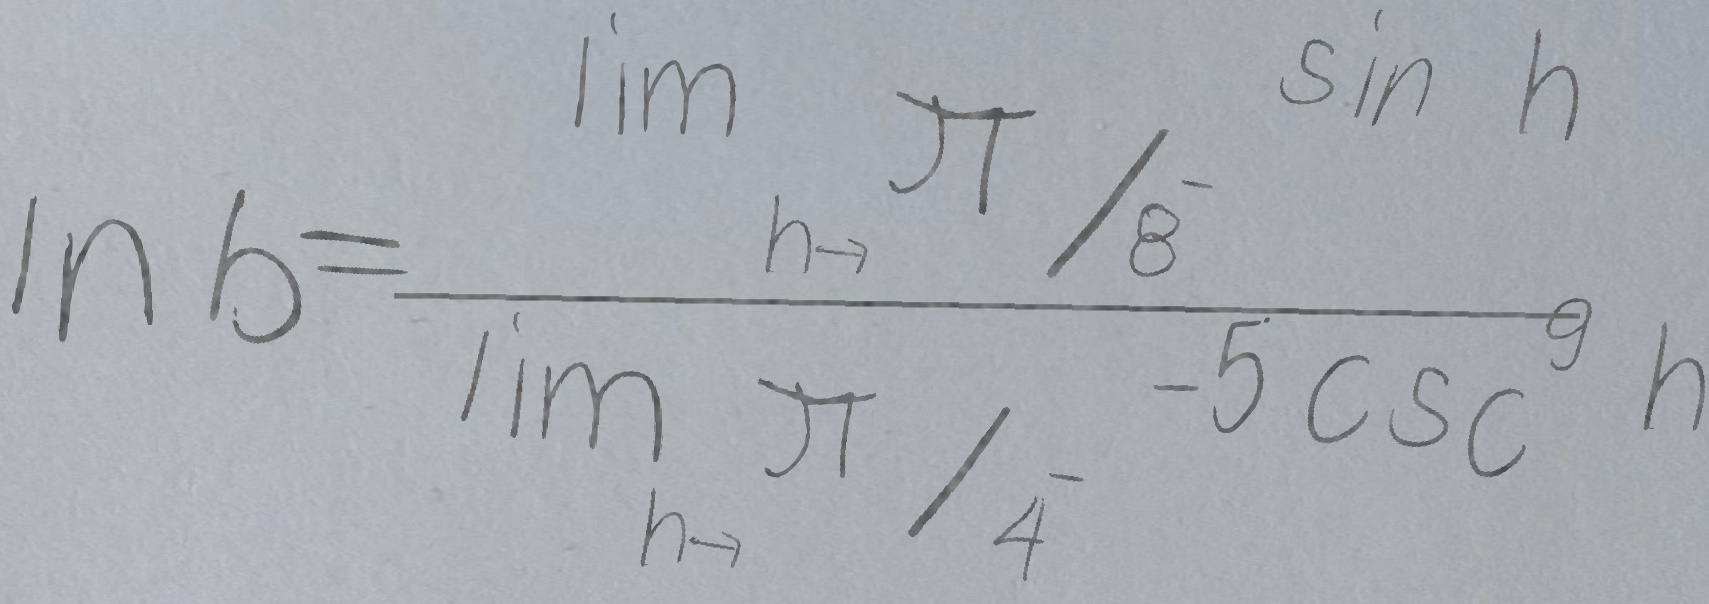 ln b = \frac{\lim_{h \to \pi/8^-} \sin h}{\lim_{h \to \pi/4^-} -5 \csc^9 h}